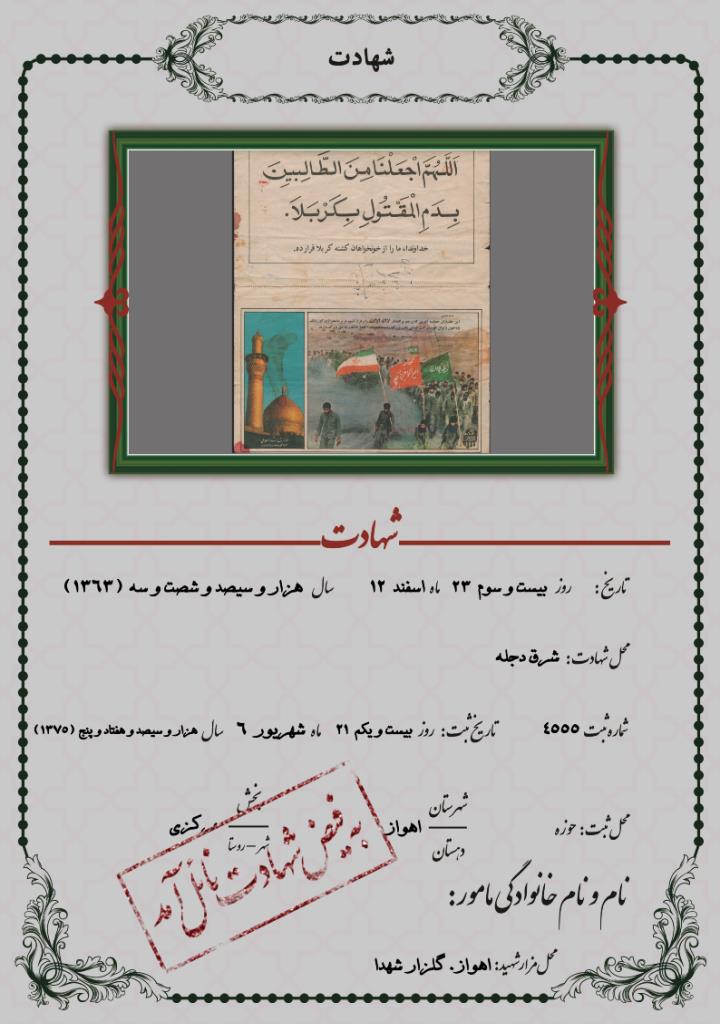 شهادت
اَللّهُمَّ اجْعَلْنَا مِنَ الطَّالِبينَ
بِدَمِ الْمَقْتُولِ بِكَرْبَلَا.
خداوندا، ما را از خونخواهان کشته کربلا قرار ده.
شهادت
تاریخ: روز بیست و سوم ۲۳ ماه اسفند ۱۲ سال هزار و سیصد و شصت و سه (۱۳۶۳)
محل شهادت: شرق دجله
شماره ثبت ٤٥٥٥ تاریخ ثبت: روز بیست و یکم ۲۱ ماه شهریور ۶ سال هزار و سیصد و هفتاد و پنج (۱۳۷۵)
محل ثبت: حوزه شهرستان اهواز بخش مرکزی
دهستان شهر – روستا
به فیض شهادت نائل آمد
نام و نام خانوادگی مامور:
محل مزار شهید: اهواز. گلزار شهدا